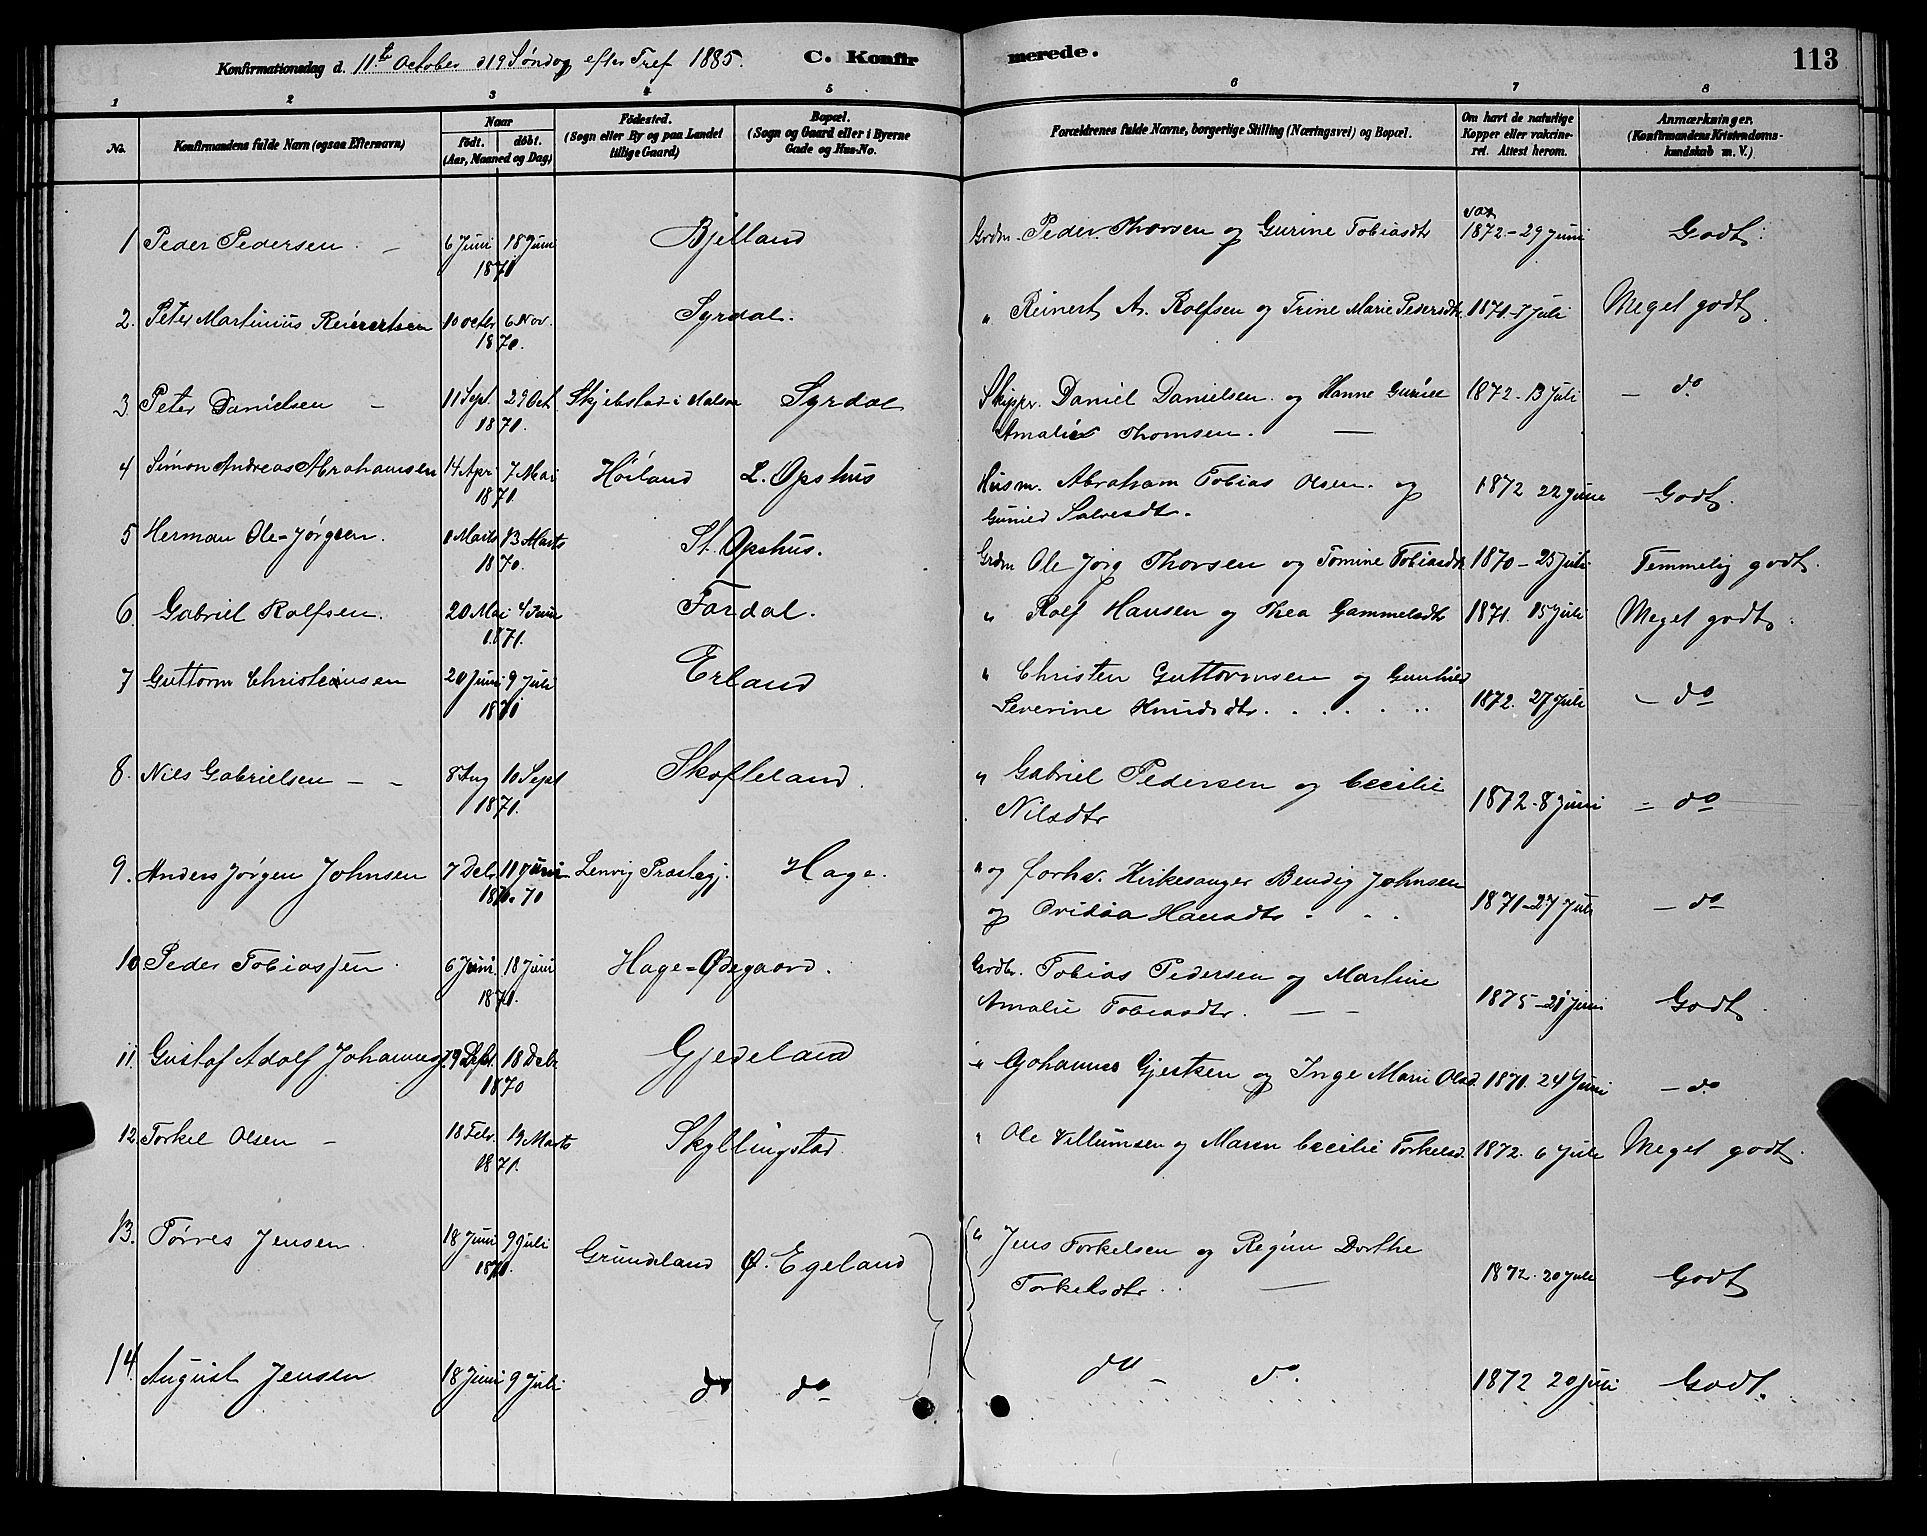 Konfirmationsdag d. 11te October d 19 Søndag efter Tref 1885. C. Konfirmerede. 113
1 2 3 4 5 6 7 8
No. Konfirmandens fulde Navn (ogsaa Efternavn) Naar födt. döbt. (Aar, Maaned og Dag) Födested. (Sogn eller By og paa Landet tillige Gaard) Bopæl. (Sogn og Gaard eller i Byerne Gade og Hus-No. Forældrenes fulde Navne, borgerlige Stilling (Næringsvei) og Bopæl. Om havt de naturlige Kopper eller vakcineret. Attest herom. Anmærkninger. (Konfirmandens Kristendomskundskab m. V.)
1 Peder Pedersen - 6 Juni 18 Juni 1871 Bjelland Grdm. Peder Thorsen og Gurine Tobiasdtr vax 1872 - 29 Juni Godt.
2. Peter Martinius Reinertsen 10 octbr 6 Nov. 1870. Syrdal. " Reinert A. Rolfsen og Trine Marie Pedersdtr 1871 - 1 Juli Meget godt.
3 Peter Danielsen - 11 Sept. 29 Oct. 1871. Skjebstad i Halse Syrdal Skipper Daniel Danielsen og Hanne Gurine
Amalie Thomsen. — 1872 - 13 Juli - do
4 Simon Andreas Abrahamsen 14 Apr 7 Mai 1871. Høiland L. Opshus Husm. Abraham Tobias Olsen. og
Gunild Salvesdtr. 1872 22 June Godt.
5 Herman Ole-Jørgsen. 1 Marts 13 Marts 1870. St. Opshus. Grdm Ole Jørg Thorsen og Tomine Tobiasdtr 1870 - 25 Juli Temmelig godt.
6. Gabriel Rolfsen. 20 Mai 4 Juni 1871. Fardal. " Rolf Hansen og Thea Gammelsdtr 1871. 15 Juli Meget godt.
7 Guttorm Christensen 20 Juni 9 Juli 1871 Erland " Christen Guttormsen og Gunhild
Severine Knudsdtr. 1872. 27 Juli - do
8. Nils Gabrielsen - - 8 Aug 10 Sept 1871. Skofteland. " Gabriel Pedersen og Cecilie
Nilsdtr 1872 - 8 Juni - do
9. Anders Jørgen Johnsen 7 Debr 11 Juni 70 Lenvig Præstegj. Hage. " og forhv. Kirkesanger Bendig Johnsen
og Ovidia Hansdtr. 1871 - 27 Juli - do
10 Peder Tobiassen. 6 Juni 18 Juni 1871. Hage-Ødegaard. Grdbr. Tobias Pedersen og Martine
Amalie Tobiasdtr. — — 1875 - 21 Juni Godt.
11. Gustaf Adolf Johannes. 19 Sept. 18 Debr 1870 Gjedeland " Johannes Gjertsen og Inge Marie Olsd. 1871. 24 Juni - do
12. Torkel Olsen - 18 Febr. 19 Marts 1871. Skyllingstad. " Ole Villumsen og Maren Cecilie Torkelsd. 1872. 6 Juli Meget godt.
13. Tørres Jensen. 18 Juni 9 Juli 1871. Grundeland Ø. Egeland " Jens Torkelsen og Regine Dorthe
Torkelsdtr. — 1872. 20 Juli Godt
14. August Jensen 18 Juni 9 Juli do do do - do. 1872 20 Juli Godt.